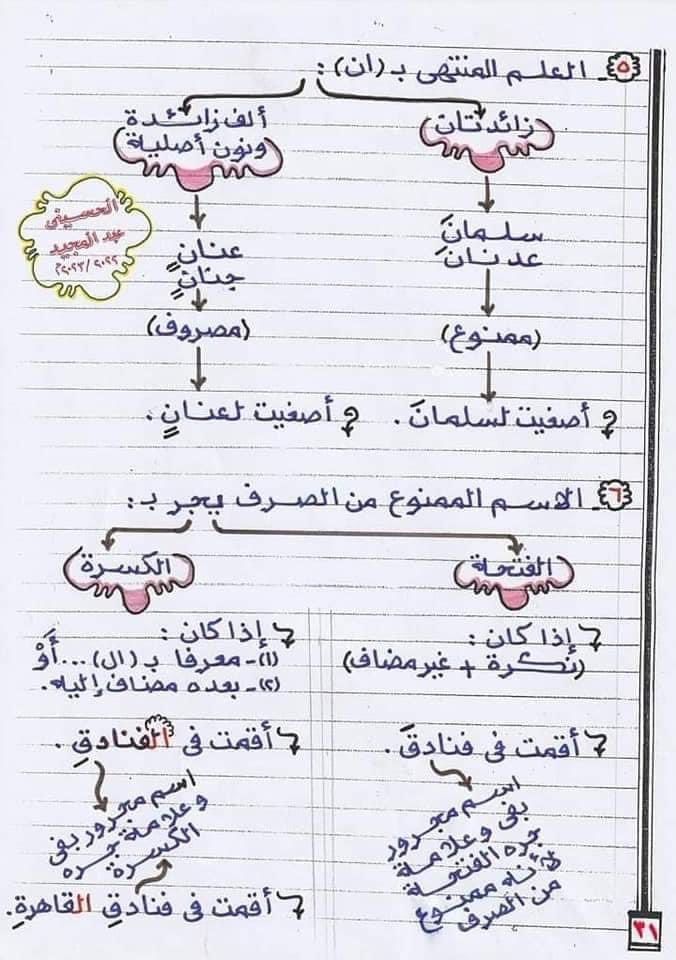 ٥- العلم المنتهى بـ (ان) :
زائدتان
ألف زائدة
ونون أصلية
سلمانَ
عدنانَ
عنانٍ
جنانٍ
الحسينى
عبد المجيد
٢٠٢٢/٢٠٢٣م
(ممنوع)
(مصروف)
أصغيت لسلمانَ .
أصغيت لعنانٍ .
٦- الاسم الممنوع من الصرف يجر بـ :
الفتحة
الكسرة
إذا كان :
(نكرة + غير مضاف)
إذا كان :
(١)- معرفا بـ (ال) ... أَوْ
(٢)- بعده مضاف إليه .
أقمت فى فنادقَ .
اسم مجرور
بفى وعلامة
جره الفتحة
لأنه ممنوع
من الصرف
أقمت فى الفنادقِ .
اسم مجرور بفى
وعلامة جره
الكسرة
أقمت فى فنادقِ القاهرةِ .
٣١